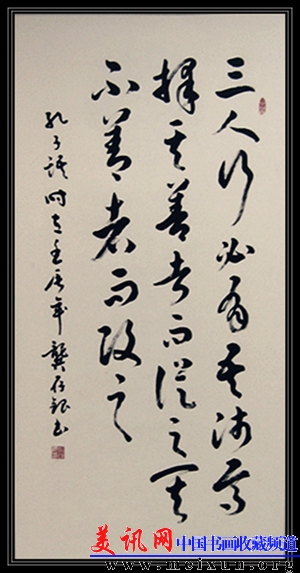 三人行必有我师焉
择其善者而从之其
不善者而改之
孔子语时在壬辰年龚
美讯网中国书画收藏频道
www.meixun.org